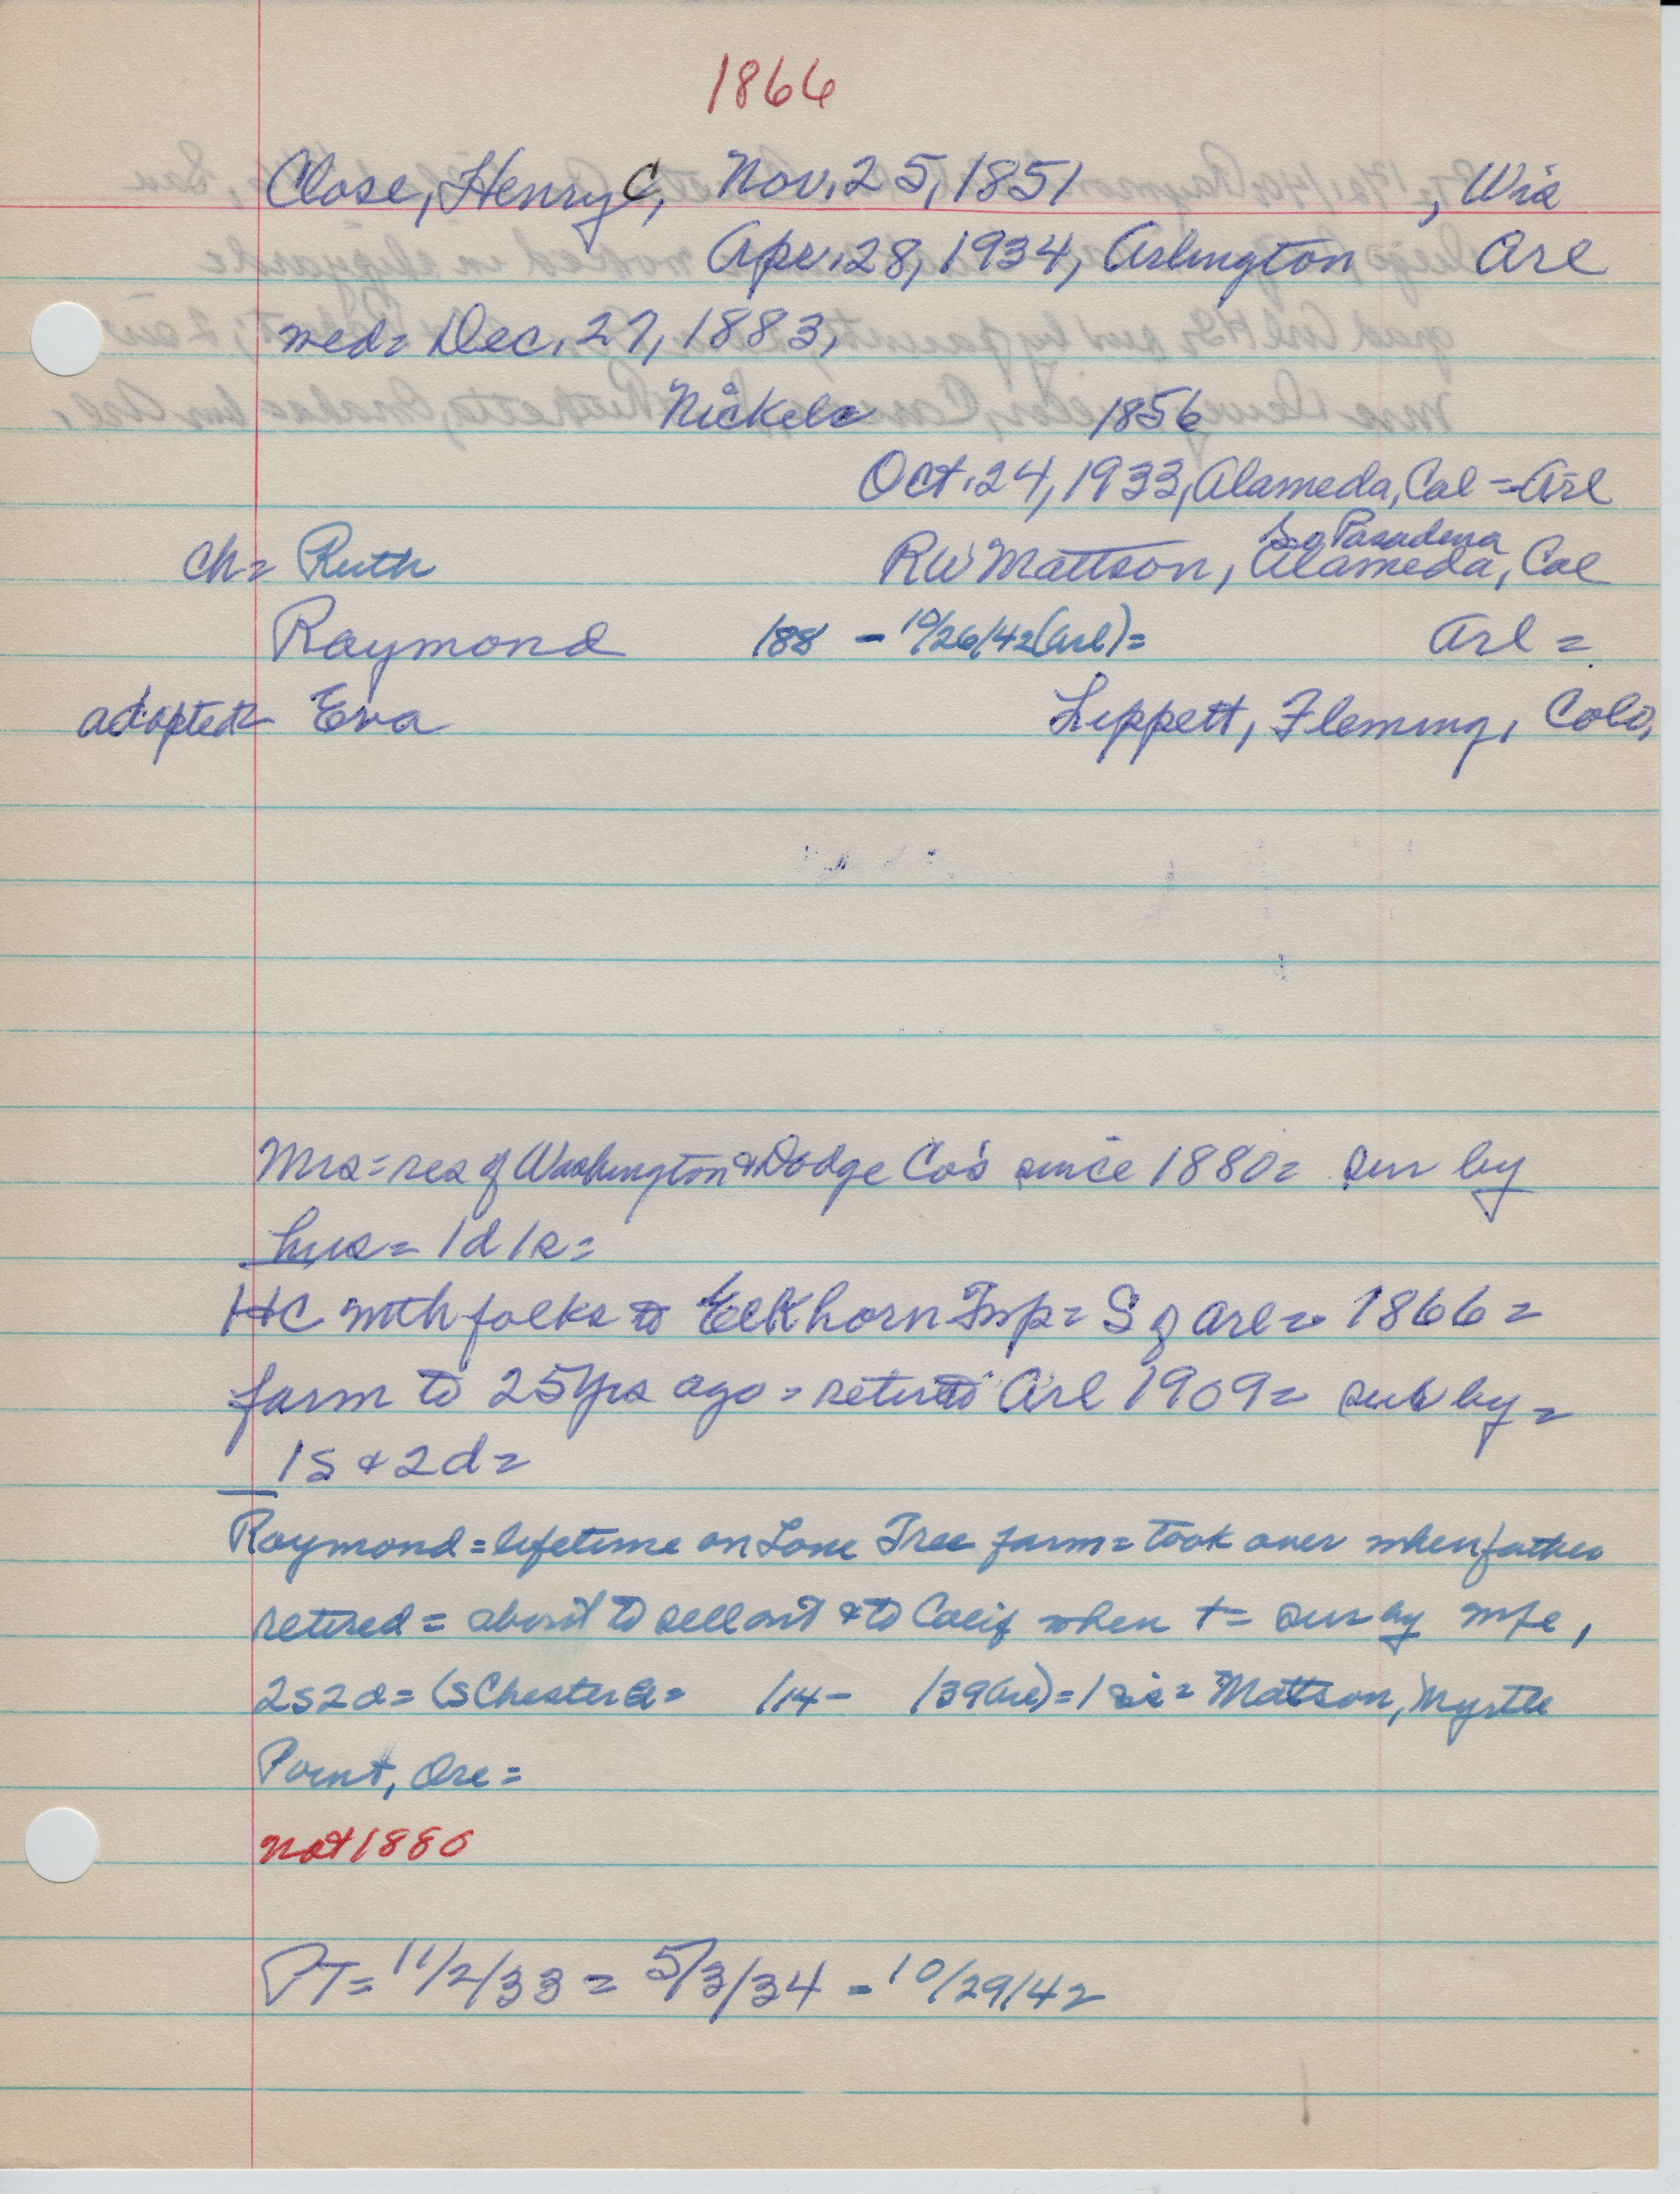 1866
Close, Henry C, Nov. 25, 1851 , Wis
Apr. 28, 1934, Arlington Arl
med= Dec. 27, 1883,
Nickels 1856
Oct. 24, 1933, Alameda, Cal = Arl
So Pasadena
ch= Ruth RW Mattson, Alameda, Cal
Raymond 188 - 10/26/42 (Arl)= Arl =
adopted= Eva Lippett, Fleming, Colo,
Mrs = res of Washington & Dodge Co's since 1880= sur by
hus = 1d 1s=
HC with folks to Elkhorn Twp= S of Arl= 1866=
farm to 25 yrs ago = retired Arl 1909= sur by =
1s & 2d=
Raymond = lifetime on Lone Tree farm = took over when father
retired = about to sell out & to Calif when += sur by wife,
2s 2d= (s Chester = /14- /39 (Arl)= 1 sis= Mattson, Myrtle
Point, Ore=
not 1880
PT= 11/2/33 = 5/3/34 - 10/29/42